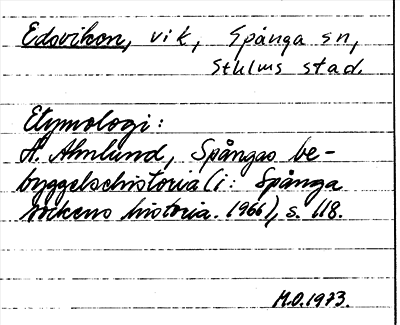 Edsviken, vik, Spånga sn,
Sthlms stad.
Etymologi:
A. Ahnlund, Spångas be-
byggelsehistoria (i: Spånga
sockens historia. 1966), s. 118.
M.O. 1973.